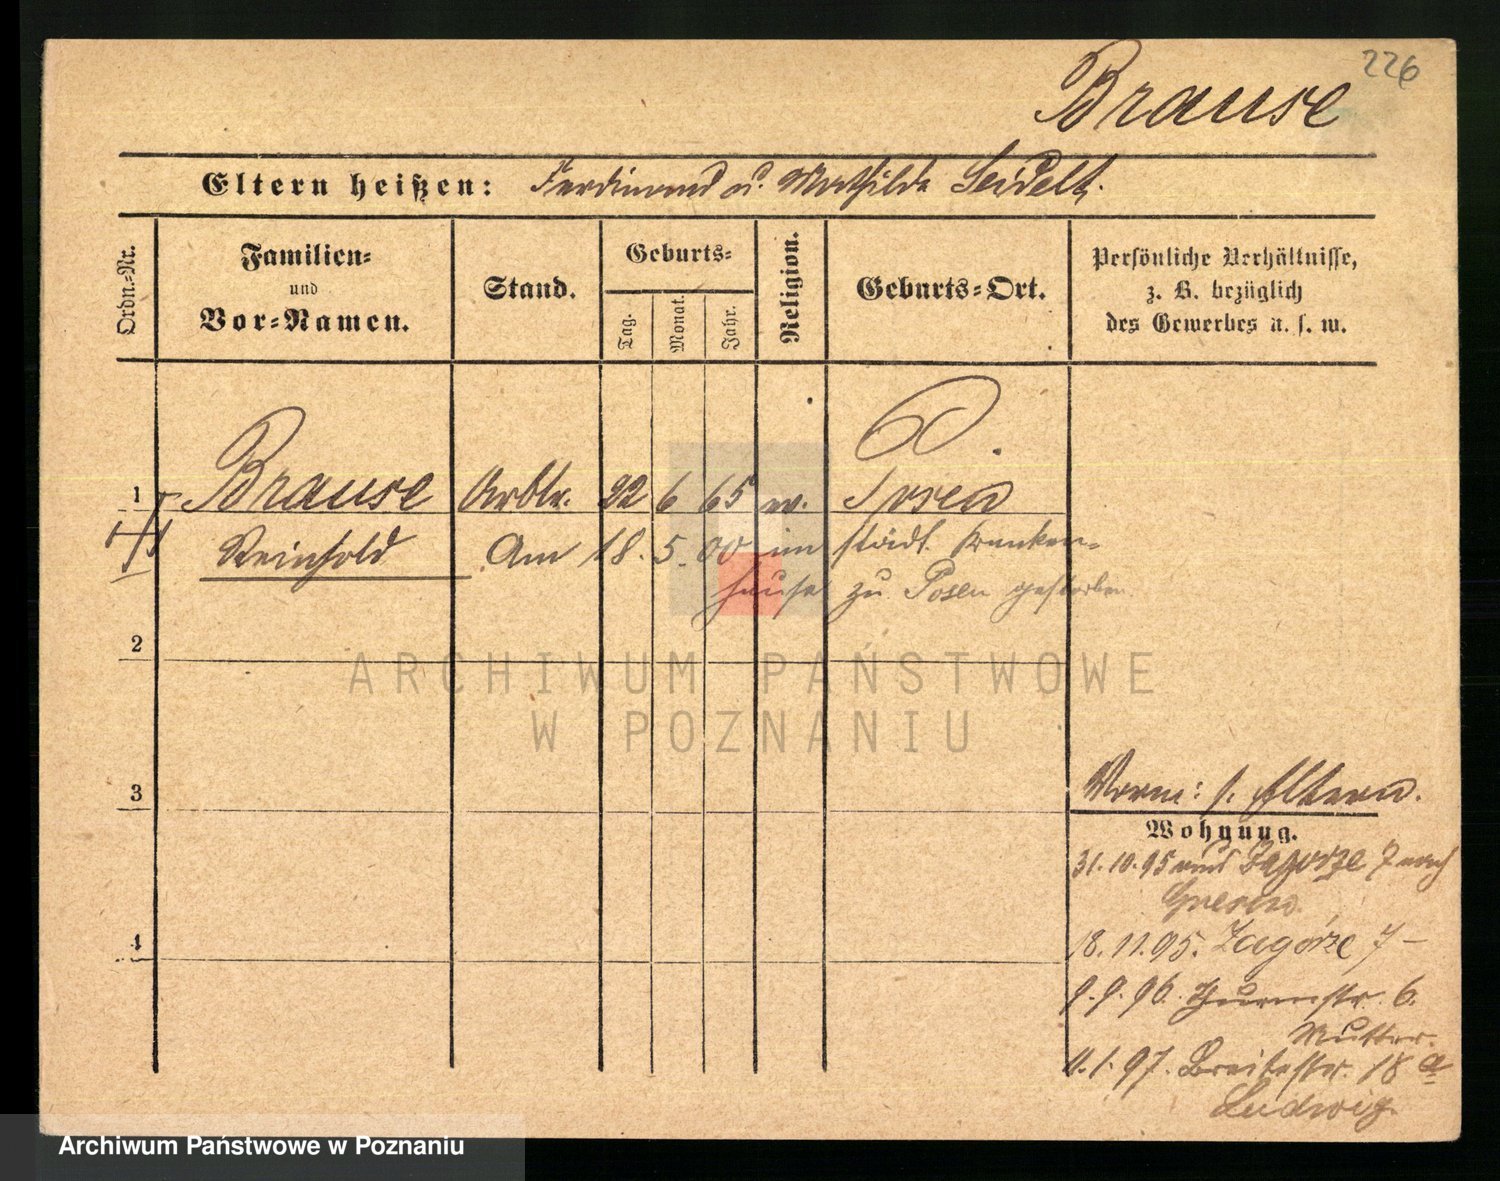 226
Brause
Eltern heißen: Ferdinand u. Mathilde Seidelt.
Ordn.-Nr.
Familien- und Vor-Namen.
Stand.
Geburts-
Tag.
Monat.
Jahr.
Religion.
Geburts-Ort.
Persönliche Verhältnisse,
z. B. bezüglich
des Gewerbes u. s. w.
60.
1 Brause Arbtr. 22 6 65 ev. Posen
Reinhold Am 18. 5. 00 im städt. Kranken-
hause zu Posen gestorben.
2
3
4
Vorm: s. Eltern.
Wohnung.
31.10.95 aus Zagorze 7 nach
Gnesen
18.11.95. Zagórze 7 –
9.9.96. Thurmstr. 6.
Mutter.
11.1.97. Breitestr. 18 a
Ludwig.
ARCHIWUM PAŃSTWOWE
W POZNANIU
Archiwum Państwowe w Poznaniu